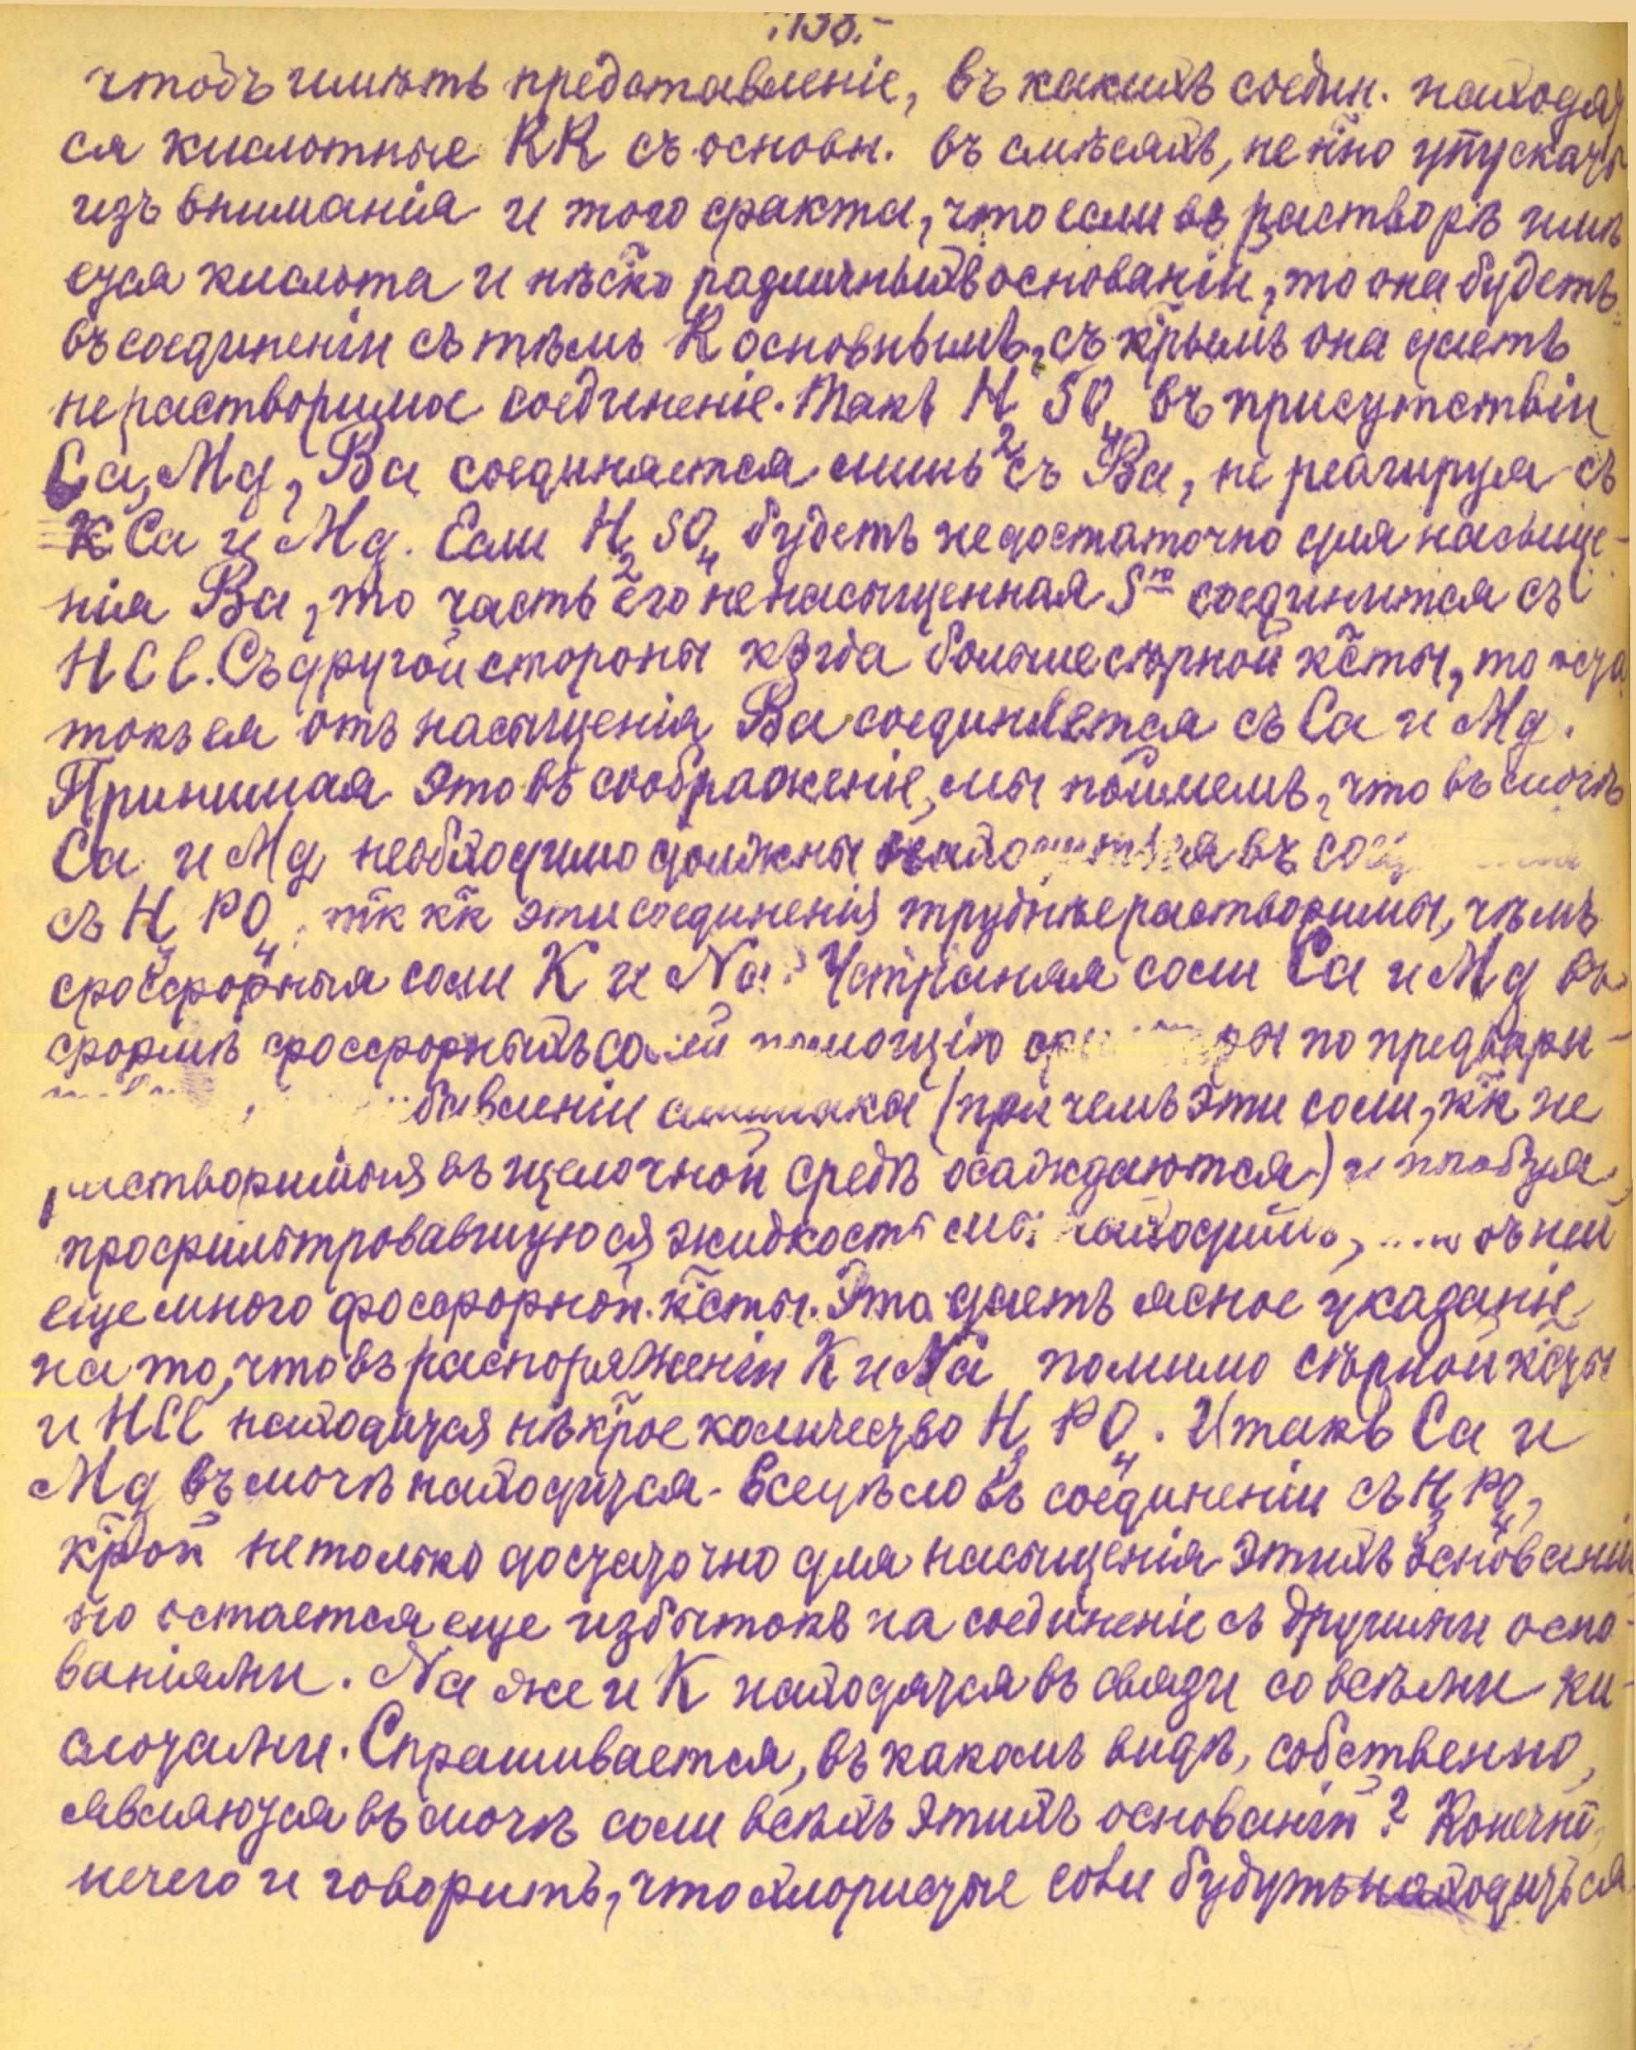 .138.-
чтобъ имѣть представленіе, въ какихъ соедин. находят
ся кислотные RR съ основн. въ смѣсяхъ, не нно упускать
изъ вниманія и того факта, что если въ растворѣ имѣ
ется кислота и нѣско различныхъ основаній, то она будетъ
въ соединеніи съ тѣмъ R основнымъ, съ крымъ она даетъ
нерастворимое соединеніе. Такъ H2SO4 въ присутствіи
Ca, Mg, Ba соединяется лишь съ Ba, не реагируя съ
Ca и Mg. Если H2SO4 будетъ недостаточно для насыще-
нія Ba, то часть его ненасыщенная S-ю соединится съ
HCl. Съ другой стороны когда больше сѣрной кты, то оста
токъ ея отъ насыщенія Ba соединяется съ Ca и Mg.
Принимая это въ соображеніе, мы поймемъ, что въ мочѣ
Ca и Mg необходимо должны находиться въ
съ H3PO4, тк кк эти соединенія труднѣе растворимы, чѣмъ
фосфорныя соли K и Na. Устраняя соли Ca и Mg въ
формѣ фосфорныхъ солей помощію по предвари-
бавленіи амміака (при чемъ эти соли, кк не
растворимыя въ щелочной средѣ осаждаются) и пробуя
профильтровавшуюся жидкость мы находимъ, въ ней
еще много фосфорной кты. Это даетъ ясное указаніе
на то, что въ распоряженіи K и Na помимо сѣрной кты
и HCl находится нѣкрое количество H3PO4. Итакъ Ca и
Mg въ мочѣ находится всецѣло въ соединеніи съ H3PO4,
крой не только достаточно для насыщенія этихъ основаній
но остается еще избытокъ на соединеніе съ другими осно-
ваніями. Na же и K находятся въ связи со всѣми ки-
слотами. Спрашивается, въ какомъ видѣ, собственно,
являются въ мочѣ соли всѣхъ этихъ основаній? Конечно,
нечего и говорить, что хлористые соли будутъ находиться